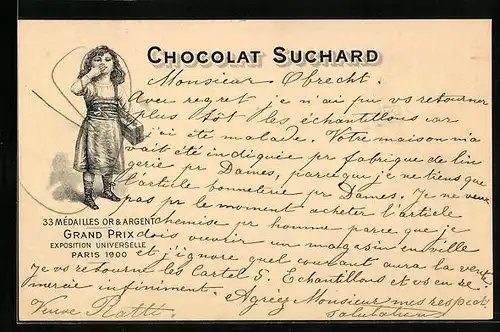 CHOCOLAT SUCHARD
Monsieur Obrecht.
Avec regret je n'ai pu vs retourner
plus tôt les échantillons car
j'ai été malade. Votre maison m'a
vait été indiquée pr fabrique de lin
gerie pr Dames, parce que je ne tiens que
l'article bonneterie pr Dames. Je ne veux
pas pr le moment acheter l'article
chemise pr homme parce que je
dois ouvrir un magasin en ville
et j'ignore quel courant aura la vente
Je vs retourne les Cartel 5. Echantillons et vs en re
mercie infiniment. Agréez Monsieur mes respect
salutations
Veuve Ratti.
33 MÉDAILLES OR & ARGENT
GRAND PRIX
EXPOSITION UNIVERSELLE
PARIS 1900